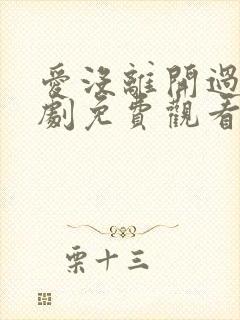 愛沒離開過
劇免費觀看
栗十三